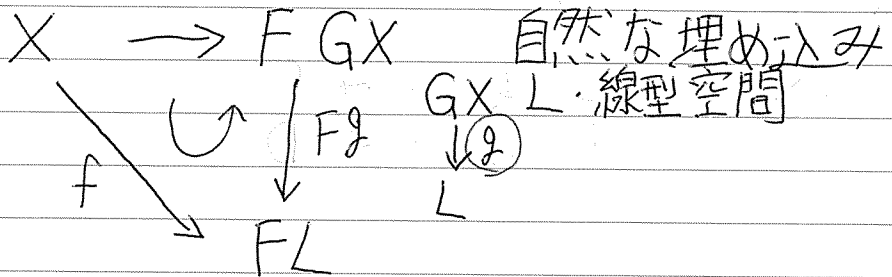 X → F GX 自然な埋め込み
GX L・線型空間
f Fg ↓ g
L
FL